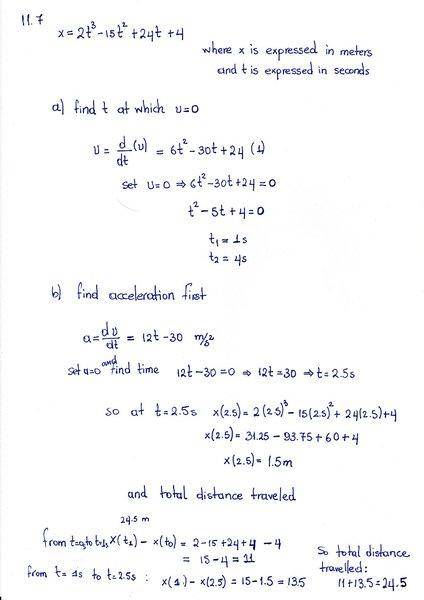 11.7
x = 2t³ - 15t² + 24t + 4
where x is expressed in meters
and t is expressed in seconds
a) find t at which v=0
v = d/dt (v) = 6t² - 30t + 24 (1)
set v=0 ⇒ 6t² - 30t + 24 = 0
t² - 5t + 4 = 0
t₁ = 1s
t₂ = 4s
b) find acceleration first
a = dv/dt = 12t - 30 m/s
set a=0 and find time 12t - 30 = 0 ⇒ 12t = 30 ⇒ t = 2.5s
so at t = 2.5s x(2.5) = 2(2.5)³ - 15(2.5)² + 24(2.5) + 4
x(2.5) = 31.25 - 93.75 + 60 + 4
x(2.5) = 1.5m
and total distance traveled
24.5 m
from t=0 to t=1s x(t₁) - x(t₀) = 2 - 15 + 24 + 4 - 4
= 15 - 4 = 11
from t = 1s to t = 2.5s : x(1) - x(2.5) = 15 - 1.5 = 13.5
So total distance
travelled:
11 + 13.5 = 24.5